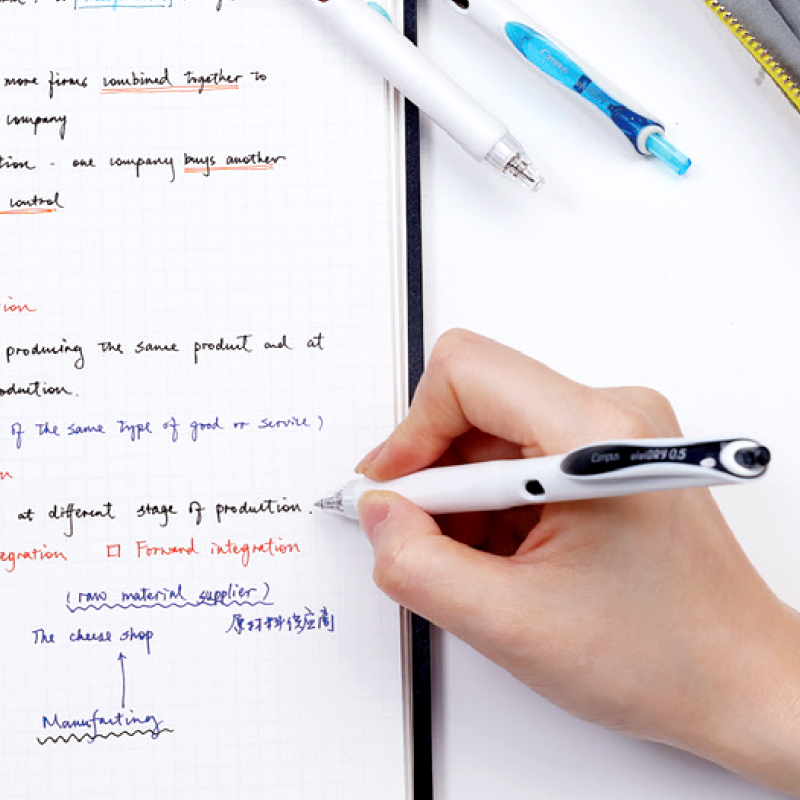 more firms combined together to
company
tion - one company buys another
control
ion
producing the same product and at
oduction.
of the same type of good or service)
n
at different stage of production.
egration □ Forward integration
(raw material supplier)
The cheese shop 原材料供应商
Manufacting
Campus
Campus 0.5